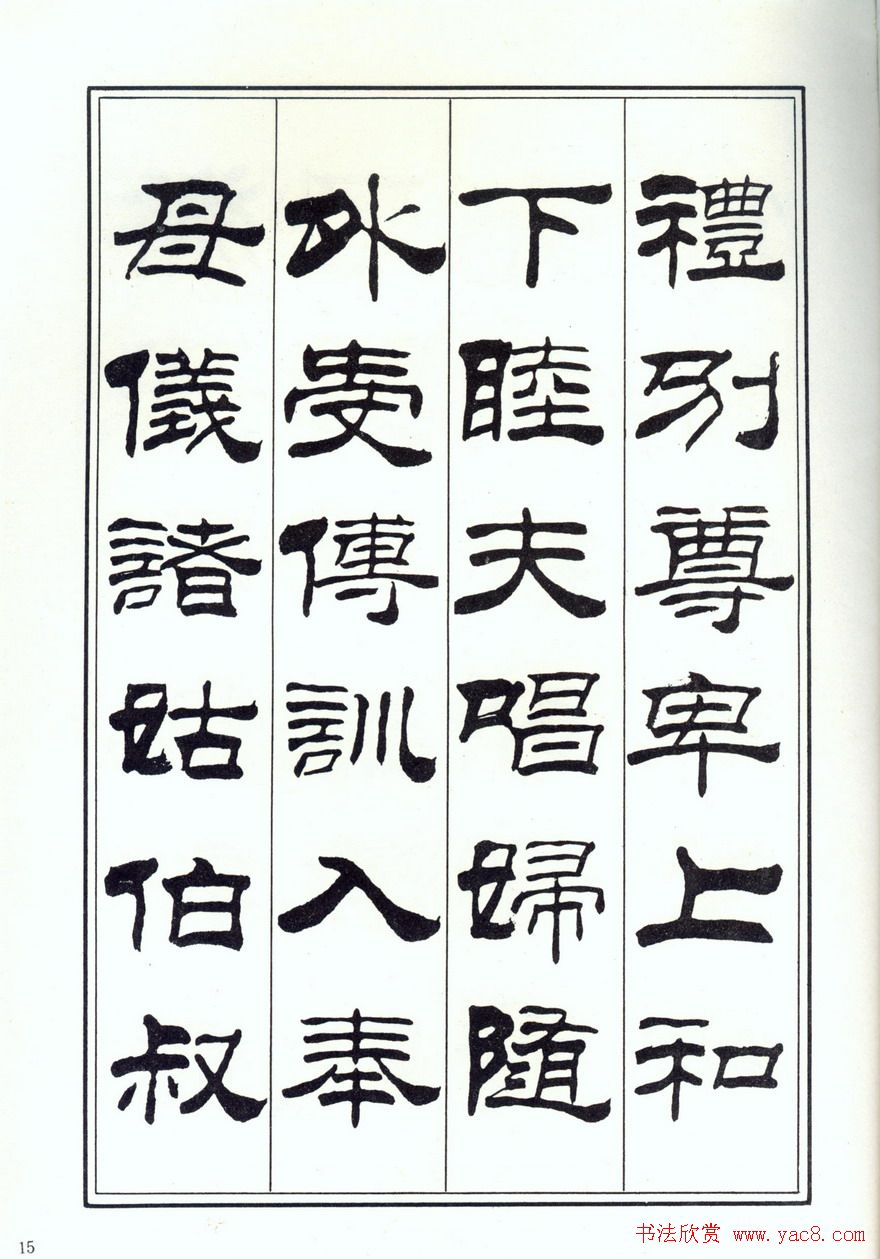 禮别尊卑上和
下睦夫唱婦隨
外受傅訓入奉
母儀諸姑伯叔
15
书法欣赏 www.yac8.com